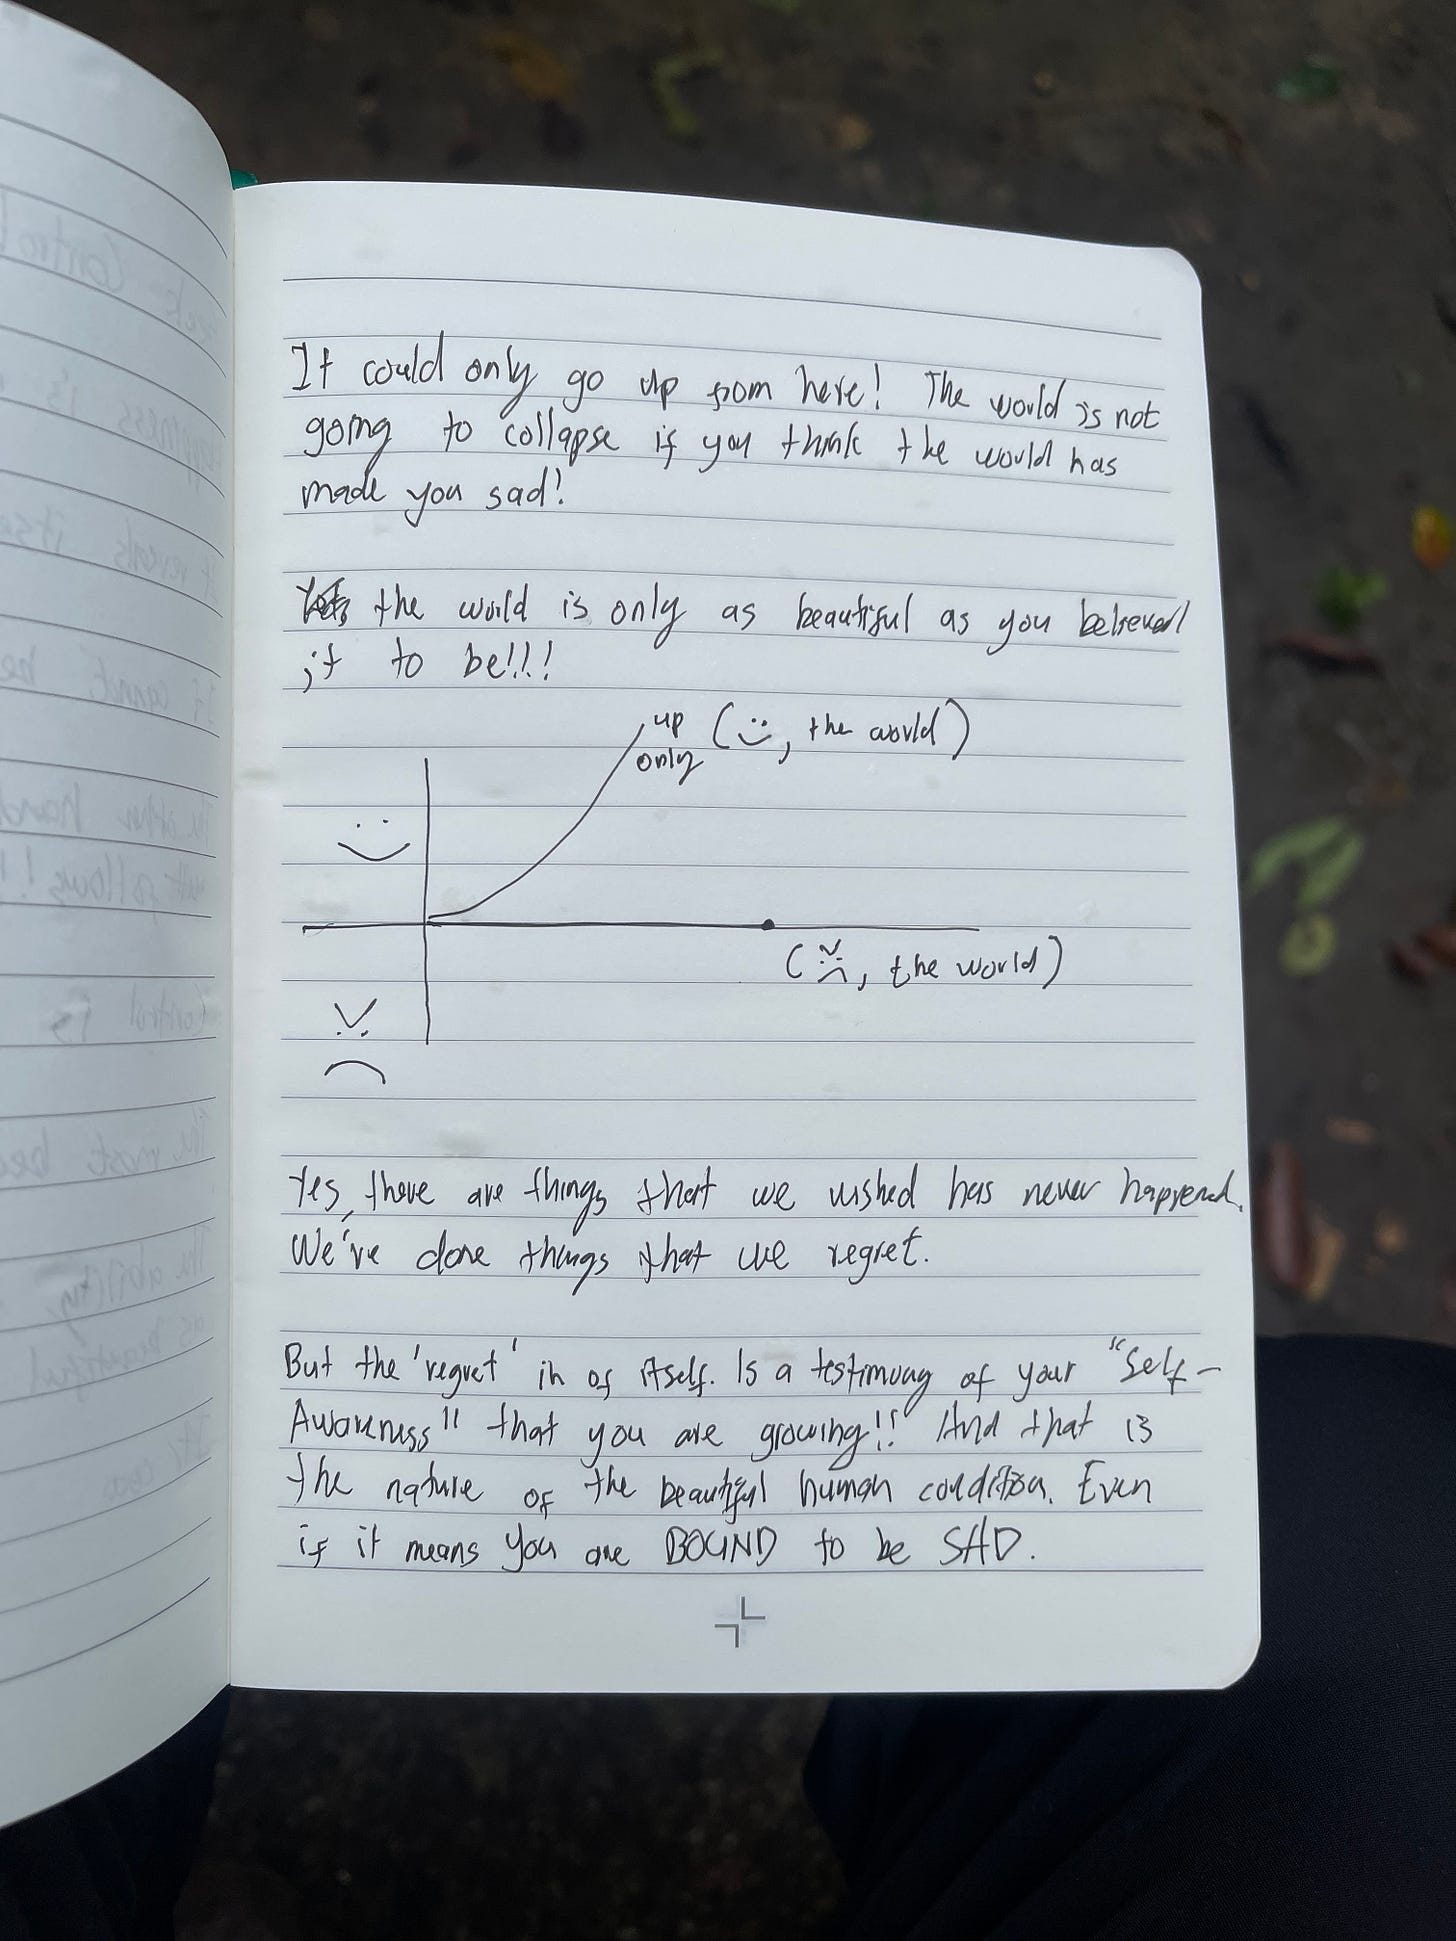 It could only go up from here! The world is not
going to collapse if you think the world has
made you sad!
the world is only as beautiful as you believed
it to be!!!
up (, the world)
only
(, the world)
Yes, there are things that we wished has never happened.
We've done things that we regret.
But the 'regret' in of itself. Is a testimony of your "Self-
Awareness" that you are growing!! And that is
the nature of the beautiful human condition. Even
if it means you are BOUND to be SAD.